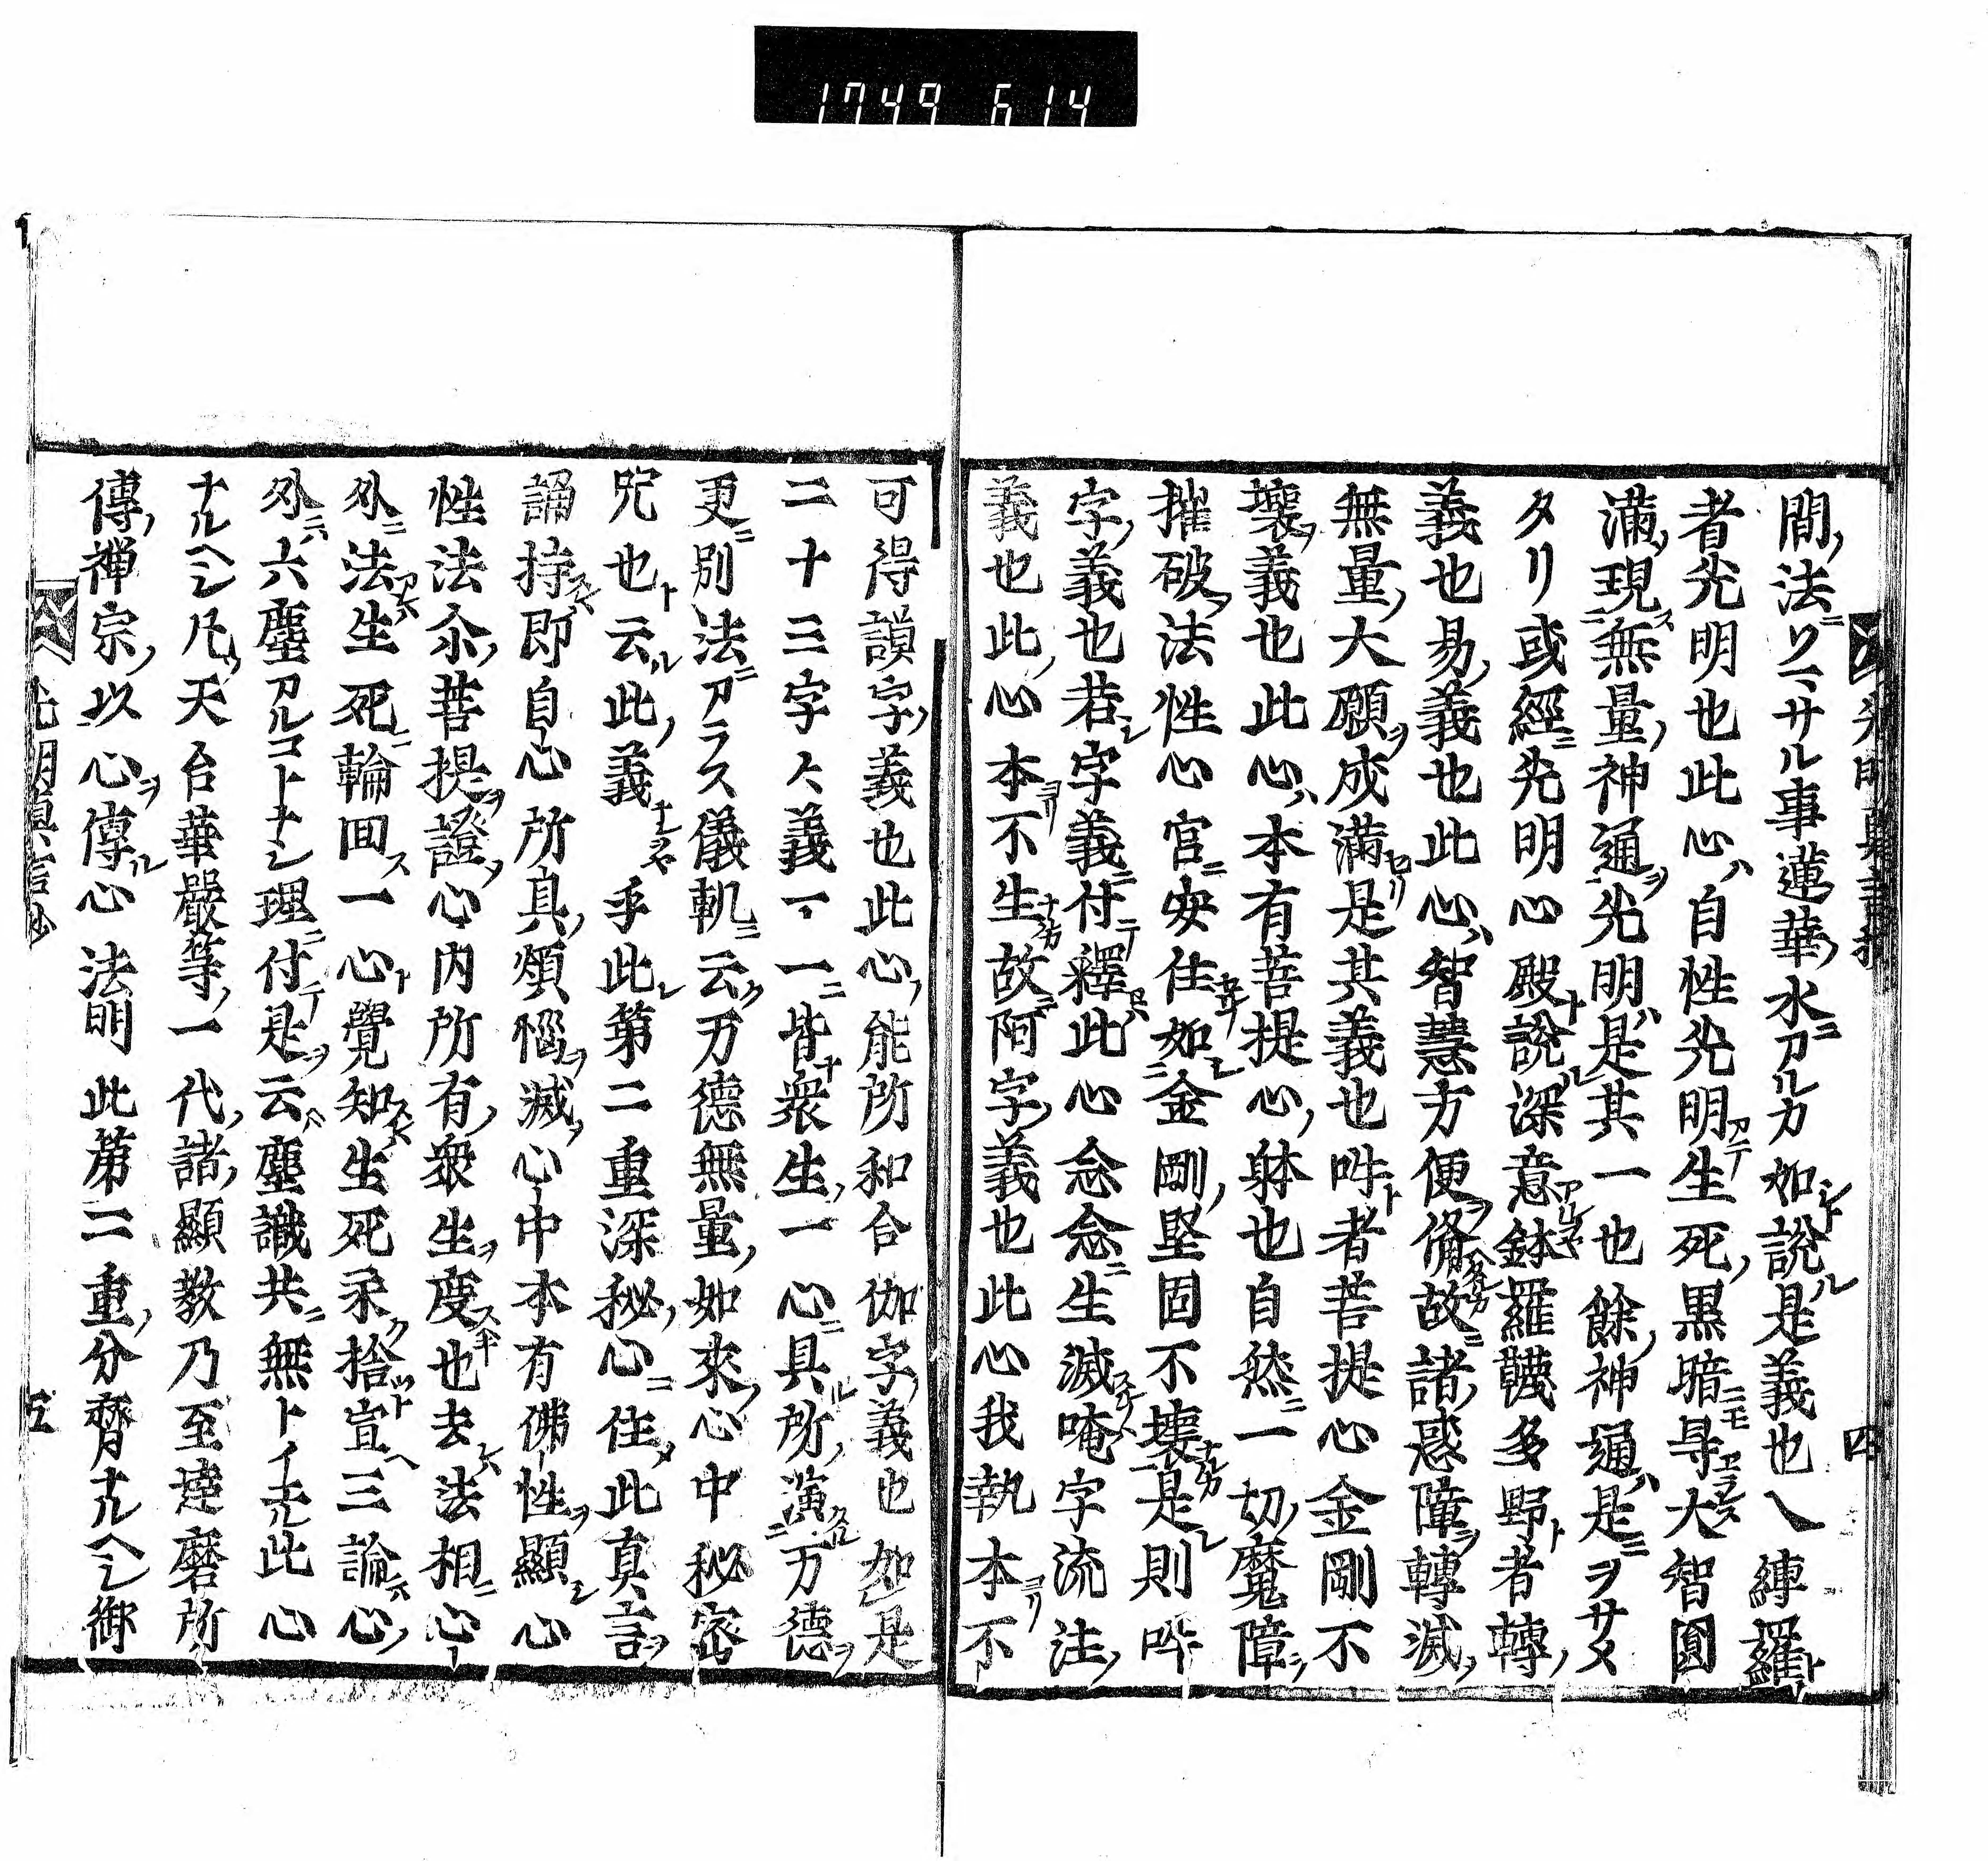 1749 614
光明真言抄
四
間ノ法ニソマサル事蓮華ノ水ニアルカ如シト説ル是義也入縛羅ト
者光明也此心ハ自性光明アニテ生死ノ黒暗ニモ尋ヨラス大智圓
滿ノ現ニス無量ノ神通ヲ光明ハ是其一也餘ノ神通ハ是ニヲサメ
タリ或經ニ光明心殿ト説ル深意アルヤ鉢羅韈多野ト者轉ノ
義也易ノ義也此心ハ智慧方便ヲ備ヘタル故ニ諸ノ惑障ヲ轉滅ノ
無量ノ大願ヲ成滿セリ是其義也吽ト者菩提心金剛不
壞ノ義也此心ハ本有菩提心ノ躰也自然ニ一切ノ魔障ヲ
摧破ノ法性心宮ニ安住セリ如ニシ金剛ノ堅固不壞ナルカ是レ則吽
字ノ義也若シ字義ニ付テ釋セハ此心念念ニ生滅スレハ唵字流注ノ
義也此ノ心本ヨリ不生ナルカ故ニ阿字ノ義也此心我執本ヨリ不
可得謨字ノ義也此心ノ能所和合伽字ノ義也如是
二十三字々義一一ニ皆ナ衆生ノ一心ニ具ル所ノ演ニタル万德ヲ
更ニ別法ニアラス儀軌ニ云ク万德無量ノ如來ノ心中秘密
咒也ト云ル此ノ義ナルヲヤ乎此レ第二重深秘ノ心ニ住メ此真言ヲ
誦持スレハ即自心所具ノ煩惱ヲ滅ノ心中本有佛性ヲ顯シ心
性法尓ノ菩提ヲ證ノ心内所有ノ衆生ヲ度スル也去レハ法相ニ心ノ
外ニ法アレハ生死ニ輪回ス一心ト覺知スレハ生死永ク捨ツト宣ヘ三論ハ心ノ
外ニハ六塵アルコトナシ理ニ付テ是ヲ云ハ塵識共ニ無トイヘル此心
ナルヘシ凡ソ天台華嚴等ノ一代ノ諸ノ顯教乃至達磨所
傳ノ禪宗ノ以心ヲ傳ル心法門此第二重ノ分齊ナルヘシ御
光明真言抄
五